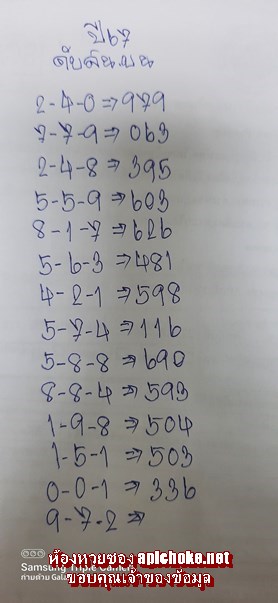 ปี67
ดับสิบบน
2-4-0⇒979
7-7-9⇒063
2-4-8⇒395
5-5-9⇒603
8-1-7⇒626
5-6-3⇒481
4-2-1⇒598
5-7-4⇒116
5-8-8⇒690
8-8-4⇒593
1-9-8⇒504
1-5-1⇒503
0-0-1⇒336
9-7-2⇒
ห้องหวยซอง apichoke.net
Samsung Triple Camera
ขอบคุณเจ้าของข้อมูล
ถ่ายด้วย Gala